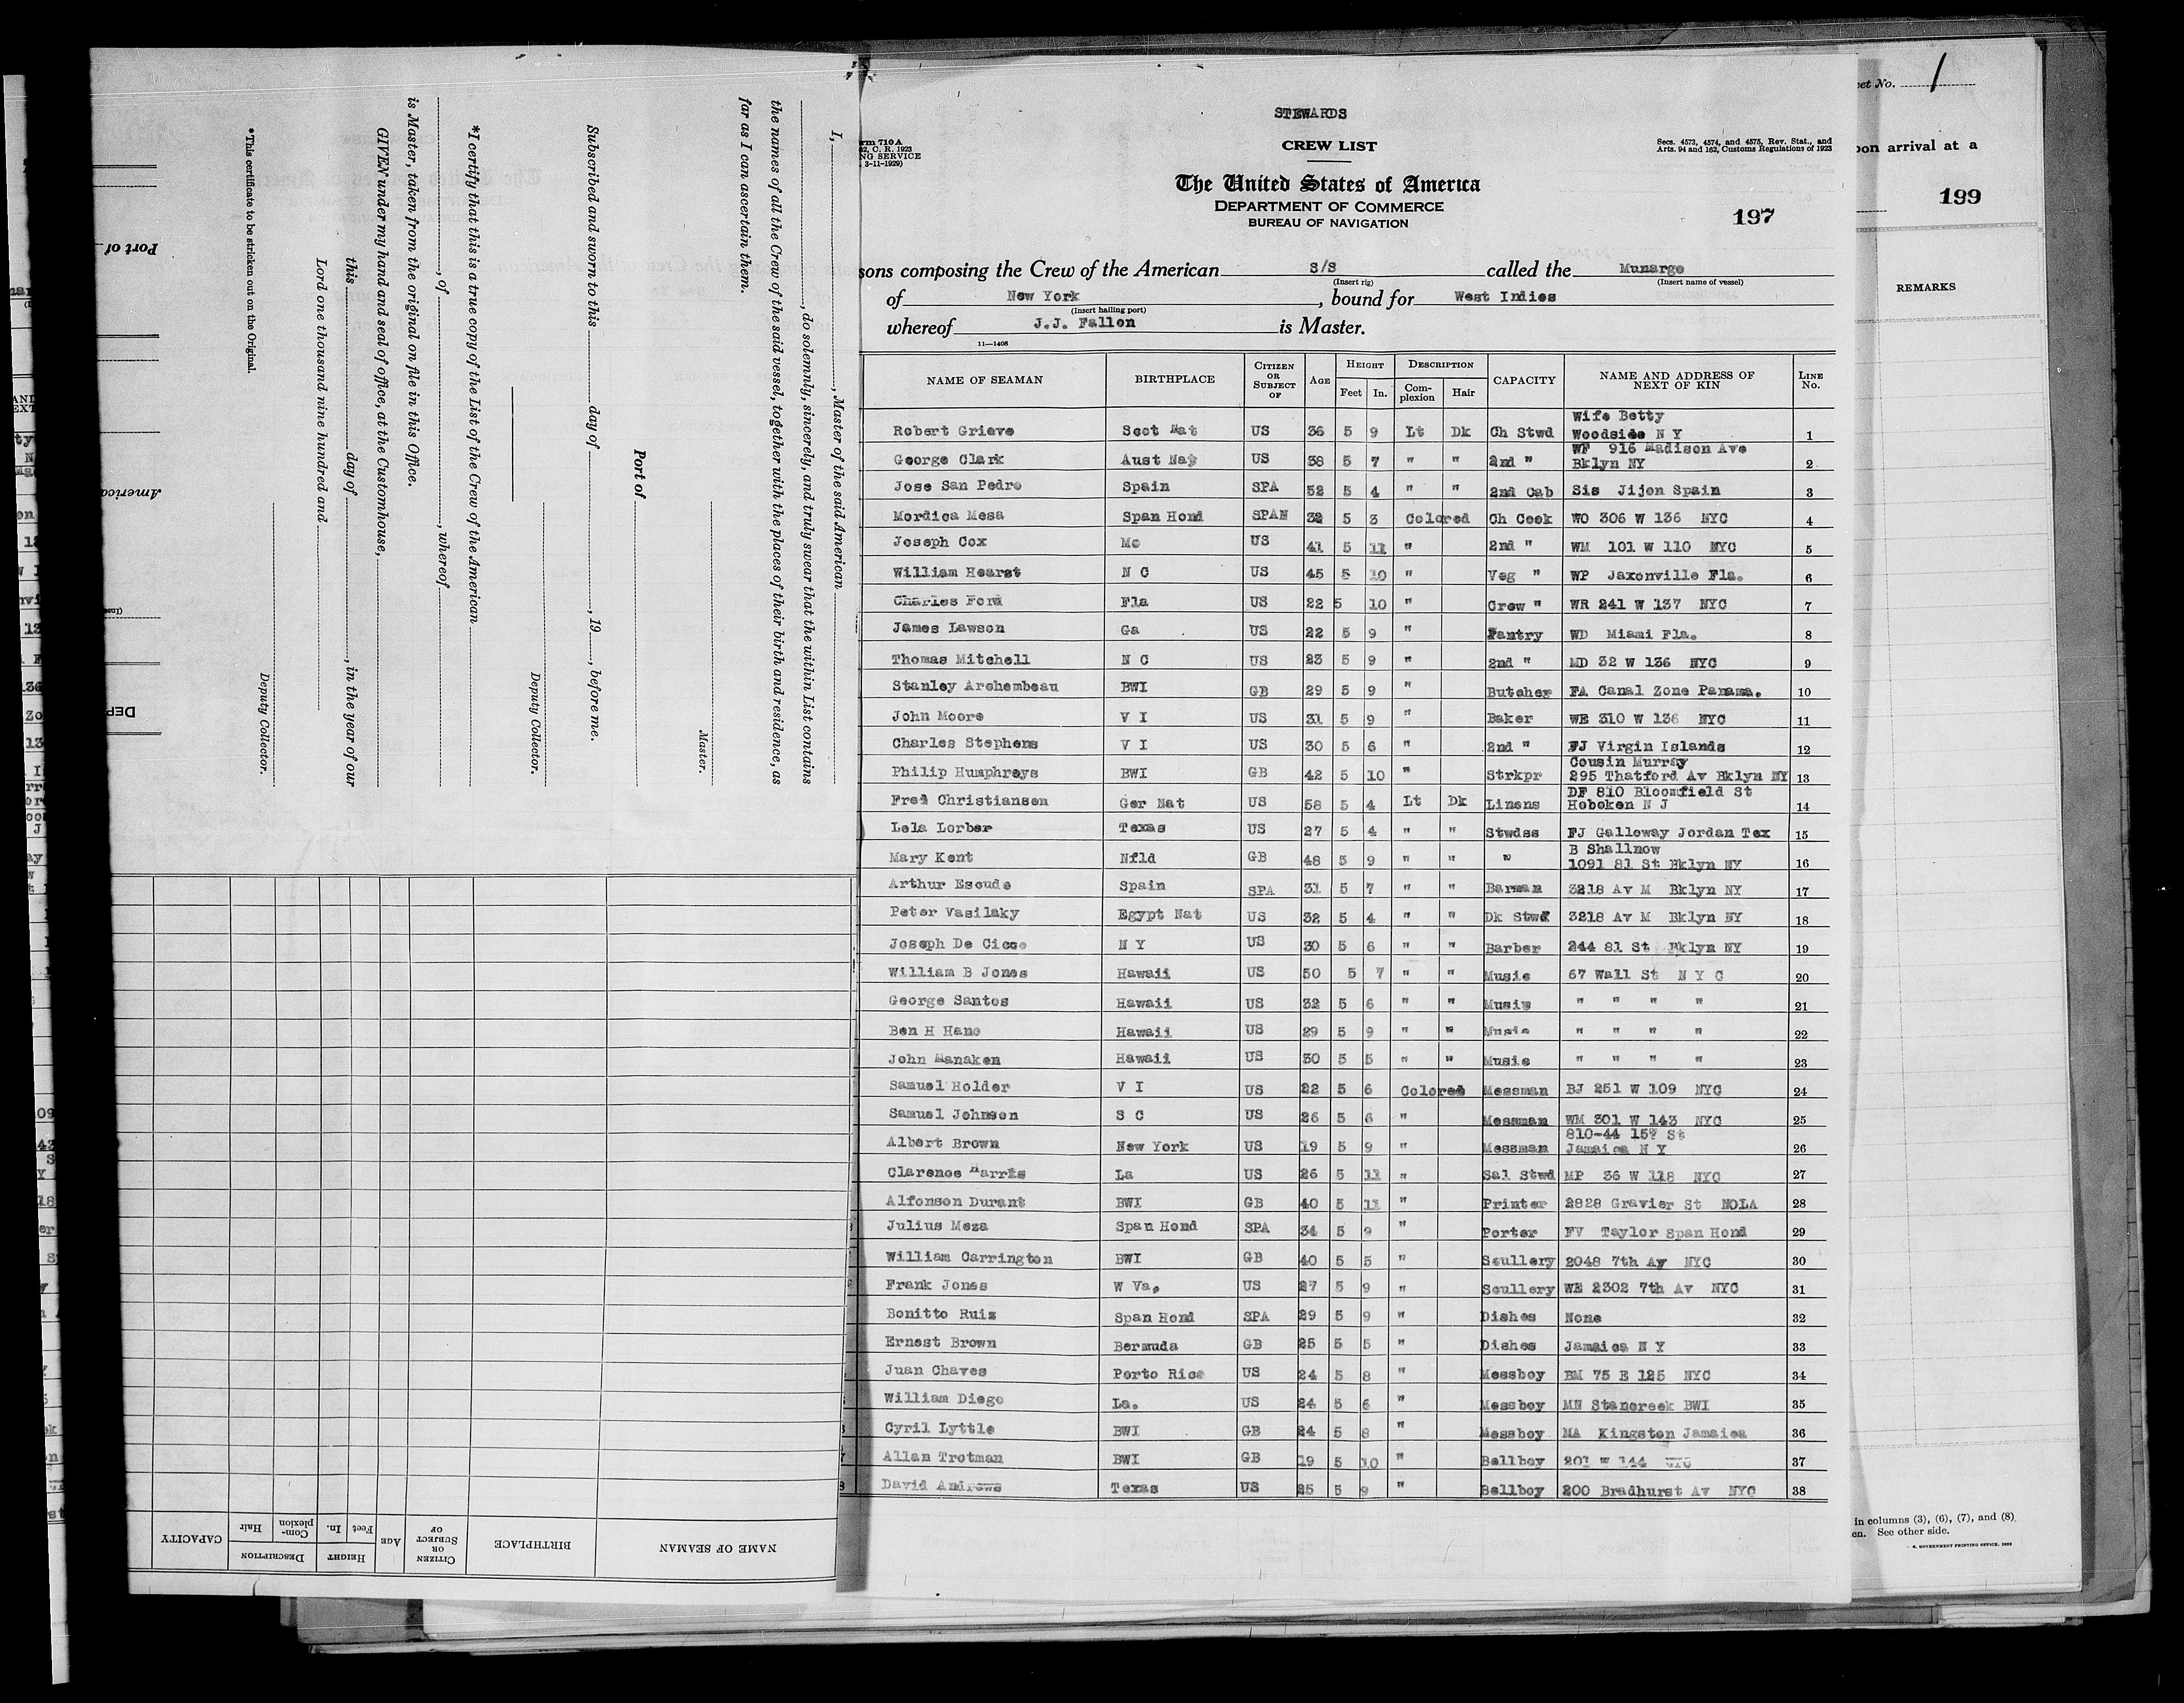 STEWARDS
CREW LIST
Secs. 4573, 4574, and 4575, Rev. Stat., and
Arts. 94 and 162, Customs Regulations of 1923
The United States of America
DEPARTMENT OF COMMERCE
BUREAU OF NAVIGATION
197
sons composing the Crew of the American S/S called the Munargo
(Insert rig) (Insert name of vessel)
of New York, bound for West Indies
(Insert hailing port)
whereof J.J. Fallon is Master.
11—1408
NAME OF SEAMAN BIRTHPLACE CITIZEN OR SUBJECT OF AGE HEIGHT Feet In. DESCRIPTION Complexion Hair CAPACITY NAME AND ADDRESS OF NEXT OF KIN LINE No.
Wife Betty
Robert Grieve Scot Nat US 36 5 9 Lt Dk Ch Stwd Woodside N Y 1
WF 916 Madison Ave
George Clark Aust Nat US 38 5 7 " " 2nd " Bklyn NY 2
Jose San Pedro Spain SPA 52 5 4 " " 2nd Cab Sis Jijon Spain 3
Mordica Mesa Span Hond SPAN 32 5 3 Colored Ch Cook WO 306 W 136 NYC 4
Joseph Cox Mo US 41 5 11 " 2nd " WM 101 W 110 NYC 5
William Hearst N C US 45 5 10 " Veg " WP Jaxonville Fla. 6
Charles Ford Fla US 22 5 10 " Crew " WR 241 W 137 NYC 7
James Lawson Ga US 22 5 9 " Pantry WD Miami Fla. 8
Thomas Mitchell N C US 23 5 9 " 2nd " MD 32 W 136 NYC 9
Stanley Archembeau BWI GB 29 5 9 " Butcher FA Canal Zone Panama. 10
John Moore V I US 31 5 9 " Baker WE 310 W 136 NYC 11
Charles Stephens V I US 30 5 6 " 2nd " FJ Virgin Islands 12
Cousin Murray
Philip Humphreys BWI GB 42 5 10 " Strkpr 295 Thatford Av Bklyn NY 13
DF 810 Bloomfield St
Fred Christiansen Ger Nat US 58 5 4 Lt Dk Linens Hoboken N J 14
Lela Lorber Texas US 27 5 4 " " Stwdss FJ Galloway Jordan Tex 15
B Shallnow
Mary Kent Nfld GB 48 5 9 " " " 1091 81 St Bklyn NY 16
Arthur Escude Spain SPA 31 5 7 " " Barman 3218 Av M Bklyn NY 17
Peter Vasilaky Egypt Nat US 32 5 4 " " Dk Stwd 3218 Av M Bklyn NY 18
Joseph De Cicco N Y US 30 5 6 " " Barber 244 81 St Bklyn NY 19
William B Jones Hawaii US 50 5 7 " " Music 67 Wall St N Y C 20
George Santos Hawaii US 32 5 6 " " Music " " " " 21
Ben H Hano Hawaii US 29 5 9 " " Music " " " " 22
John Manaken Hawaii US 30 5 5 " " Music " " " " 23
Samuel Holder V I US 22 5 6 Colored Messman BJ 251 W 109 NYC 24
Samuel Johnson S C US 26 5 6 " Messman WM 301 W 143 NYC 25
Albert Brown New York US 19 5 9 " Messman Jamaica N Y 26
Clarence Harris La US 26 5 11 " Sal Stwd MP 36 W 118 NYC 27
Alfonson Durant BWI GB 40 5 11 " Printer 2828 Gravier St NOLA 28
Julius Meza Span Hond SPA 34 5 9 " Porter FV Taylor Span Hond 29
William Carrington BWI GB 40 5 5 " Scullery 2048 7th Av NYC 30
Frank Jones W Va. US 27 5 9 " Scullery WE 2302 7th Av NYC 31
Bonitto Ruiz Span Hond SPA 29 5 9 " Dishes None 32
Ernest Brown Bermuda GB 25 5 5 " Dishes Jamaica N Y 33
Juan Chaves Porto Rico US 24 5 8 " Messboy BM 75 E 125 NYC 34
William Diego La. US 24 5 6 " Messboy MN Stancreek BWI 35
Cyril Lyttle BWI GB 24 5 8 " Messboy MA Kingston Jamaica 36
Allan Trotman BWI GB 19 5 10 " Bellboy 201 W 144 NYC 37
David Andrews Texas US 25 5 9 " Bellboy 200 Bradhurst Av NYC 38
I, , Master of the said American
, do solemnly, sincerely, and truly swear that the within List contains
the names of all the Crew of the said vessel, together with the places of their birth and residence, as
far as I can ascertain them.
Master.
Port of
Subscribed and sworn to this day of , 19 , before me.
Deputy Collector.
*I certify that this is a true copy of the List of the Crew of the American
, of , whereof
is Master, taken from the original on file in this Office.
GIVEN under my hand and seal of office, at the Customhouse,
this day of , in the year of our
Lord one thousand nine hundred and
Deputy Collector.
*This certificate to be stricken out on the Original.
NAME OF SEAMAN BIRTHPLACE CITIZEN OR SUBJECT OF AGE HEIGHT Feet In. DESCRIPTION Complexion Hair CAPACITY
Port of
American
eet No. 1
on arrival at a
199
REMARKS
in columns (3), (6), (7), and (8)
en. See other side.